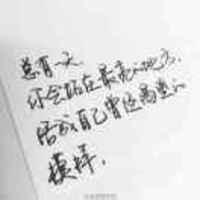 总有一天
你会站在最亮的地方,
活成自己曾经渴望的
模样.